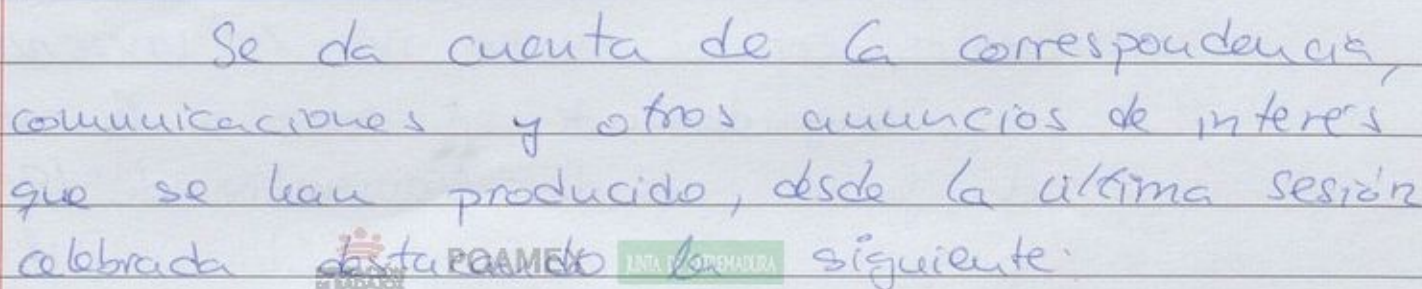 Se da cuenta de la correspondencia,
comunicaciones y otros anuncios de interés
que se han producido, desde la última sesión
celebrada destacando lo siguiente:
POAMEX JUNTA DE EXTREMADURA
DE BADAJOZ